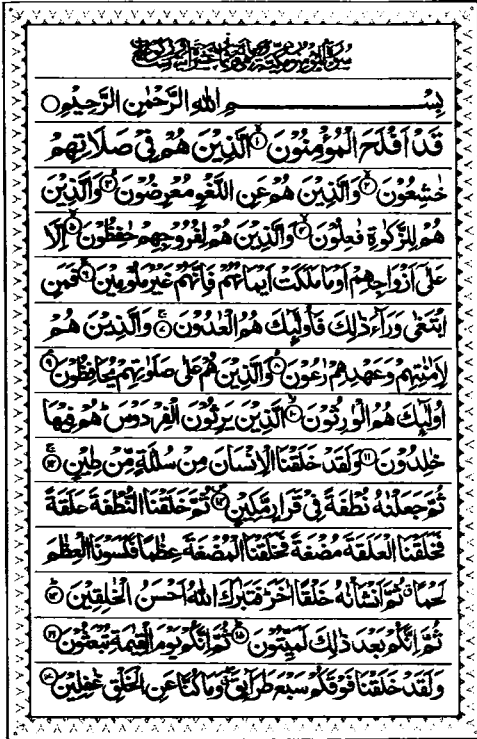 بِسْمِ اللهِ الرَّحْمٰنِ الرَّحِيْمِ ○
قَدْ اَفْلَحَ الْمُؤْمِنُوْنَ ۙ﴿۱﴾ الَّذِيْنَ هُمْ فِيْ صَلَاتِهِمْ
خٰشِعُوْنَ ۙ﴿۲﴾ وَالَّذِيْنَ هُمْ عَنِ اللَّغْوِ مُعْرِضُوْنَ ۙ﴿۳﴾ وَالَّذِيْنَ
هُمْ لِلزَّكٰوةِ فٰعِلُوْنَ ۙ﴿۴﴾ وَالَّذِيْنَ هُمْ لِفُرُوْجِهِمْ حٰفِظُوْنَ ۙ﴿۵﴾ اِلَّا
عَلٰٓى اَزْوَاجِهِمْ اَوْ مَا مَلَكَتْ اَيْمَانُهُمْ فَاِنَّهُمْ غَيْرُ مَلُوْمِيْنَ ۚ﴿۶﴾ فَمَنِ
ابْتَغٰى وَرَآءَ ذٰلِكَ فَاُولٰٓئِكَ هُمُ الْعٰدُوْنَ ۚ﴿۷﴾ وَالَّذِيْنَ هُمْ
لِاَمٰنٰتِهِمْ وَعَهْدِهِمْ رٰعُوْنَ ۙ﴿۸﴾ وَالَّذِيْنَ هُمْ عَلٰى صَلَوٰتِهِمْ يُحَافِظُوْنَ ۘ﴿۹﴾
اُولٰٓئِكَ هُمُ الْوٰرِثُوْنَ ۙ﴿۱۰﴾ الَّذِيْنَ يَرِثُوْنَ الْفِرْدَوْسَ ؕ هُمْ فِيْهَا
خٰلِدُوْنَ ﴿۱۱﴾ وَلَقَدْ خَلَقْنَا الْاِنْسَانَ مِنْ سُلٰلَةٍ مِّنْ طِيْنٍ ۚ﴿۱۲﴾
ثُمَّ جَعَلْنٰهُ نُطْفَةً فِيْ قَرَارٍ مَّكِيْنٍ ۪﴿۱۳﴾ ثُمَّ خَلَقْنَا النُّطْفَةَ عَلَقَةً
فَخَلَقْنَا الْعَلَقَةَ مُضْغَةً فَخَلَقْنَا الْمُضْغَةَ عِظٰمًا فَكَسَوْنَا الْعِظٰمَ
لَحْمًا ۗ ثُمَّ اَنْشَاْنٰهُ خَلْقًا اٰخَرَ ؕ فَتَبٰرَكَ اللهُ اَحْسَنُ الْخٰلِقِيْنَ ؕ﴿۱۴﴾
ثُمَّ اِنَّكُمْ بَعْدَ ذٰلِكَ لَمَيِّتُوْنَ ؕ﴿۱۵﴾ ثُمَّ اِنَّكُمْ يَوْمَ الْقِيٰمَةِ تُبْعَثُوْنَ ﴿۱۶﴾
وَلَقَدْ خَلَقْنَا فَوْقَكُمْ سَبْعَ طَرَآئِقَ ۖ وَمَا كُنَّا عَنِ الْخَلْقِ غٰفِلِيْنَ ﴿۱۷﴾